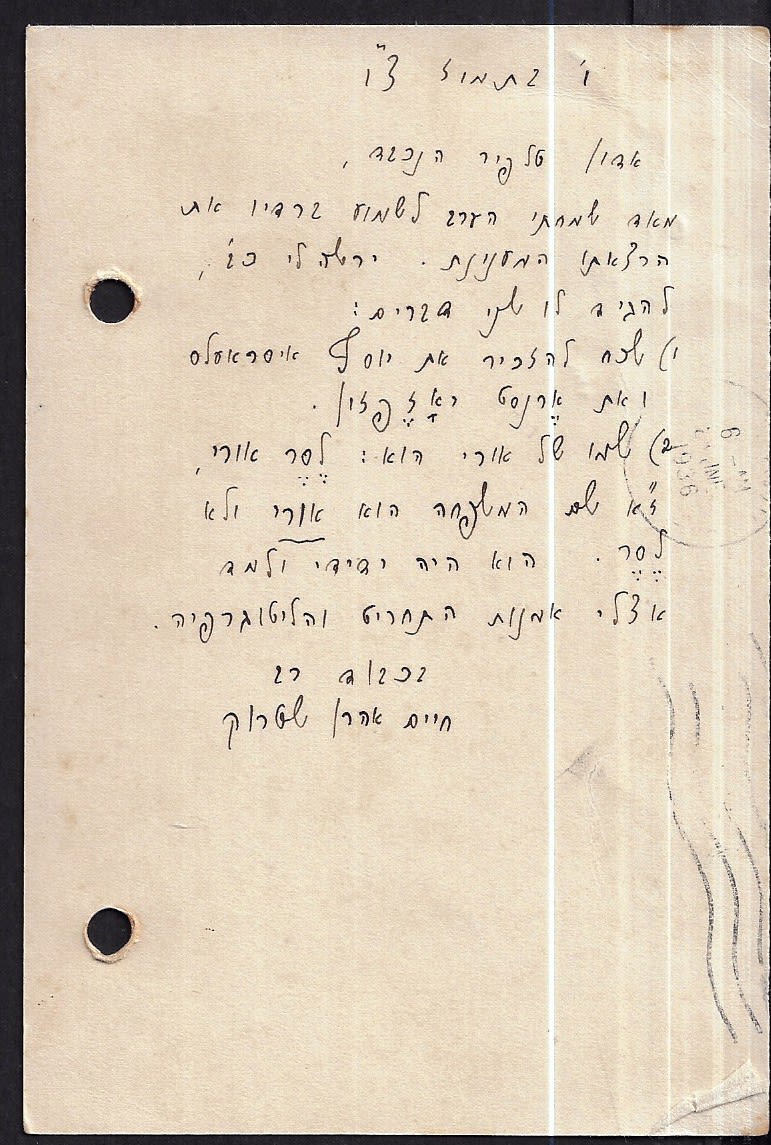 ו' בתמוז צ"ו
אדון טלפיר הנכבד,
מאד שמחתי הערב לשמוע ברדיו את
הרצאתו המענינת. ירשה לי כב',
להגיב לו שני דברים:
1) שכח להזכיר את יוסף איסראעלס
ואת אֶרנסט יאָזֶפזון.
2) שמו של אורי הוא: לֶסֶר אורי,
ז"א שם המשפחה הוא אורי ולא
לֶסֶר. הוא היה ידידי ולמד
אצלי אמנות התחריט והליטוגרפיה.
בכבוד רב
חיים אהרן שטרוק
6 - AM
JUNE
1936